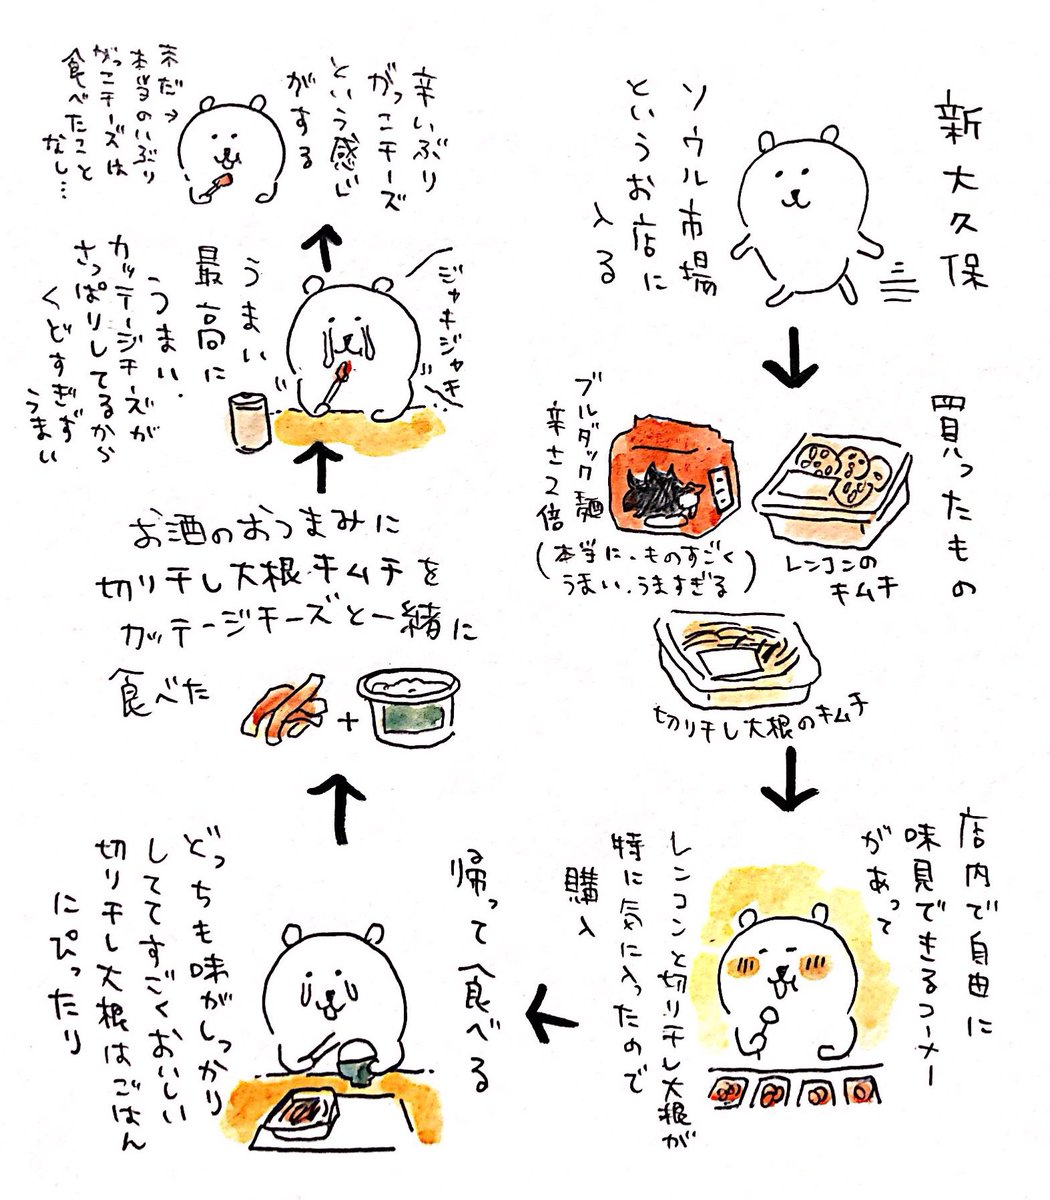 新大久保
ソウル市場
というお店に
入る
買ったもの
レンコンの
キムチ
ブルダック麺
辛さ2倍
(本当に、ものすごく
うまい、うますぎる)
切り干し大根のキムチ
店内で自由に
味見できるコーナー
があって
レンコンと切り干し大根が
特に気に入ったので
購入
帰って食べる
どっちも味がしっかり
しててすごくおいしい
切り干し大根はごはん
にぴったり
お酒のおつまみに
切り干し大根キムチを
カッテージチーズと一緒に
食べた
ジャキジャキ
うまい
最高に
うまい、
カッテージチーズが
さっぱりしてるから
くどすぎず
うまい
辛いぶり
がっこチーズ
という感じ
がする
※だ→
本当のいぶり
がっこチーズは
食べたこと
なし…